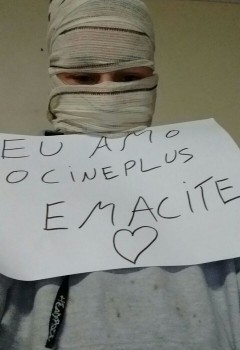 EU AMO
O CINEPLUS
EMACITE